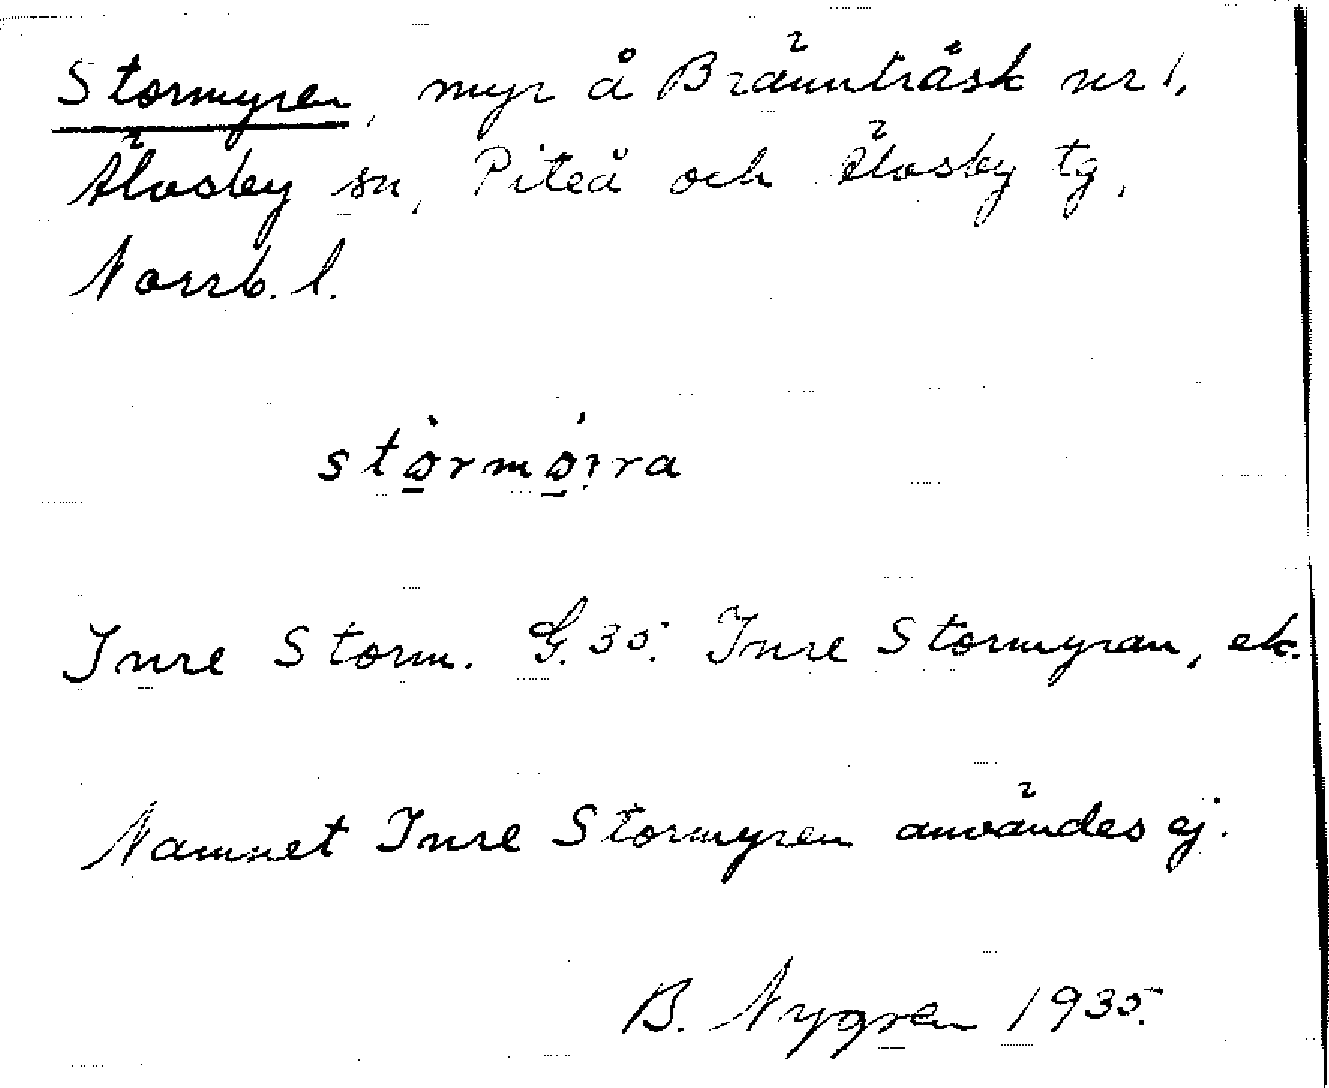 Stormyren, myr å Brännträsk nr 1,
Älvsby sn, Piteå och Älvsby tg,
Norrb. l.
Inre Storm. G. 35. Inre Stormyran, ek.
Namnet Inre Stormyren användes ej.
B. Nygren 1935.